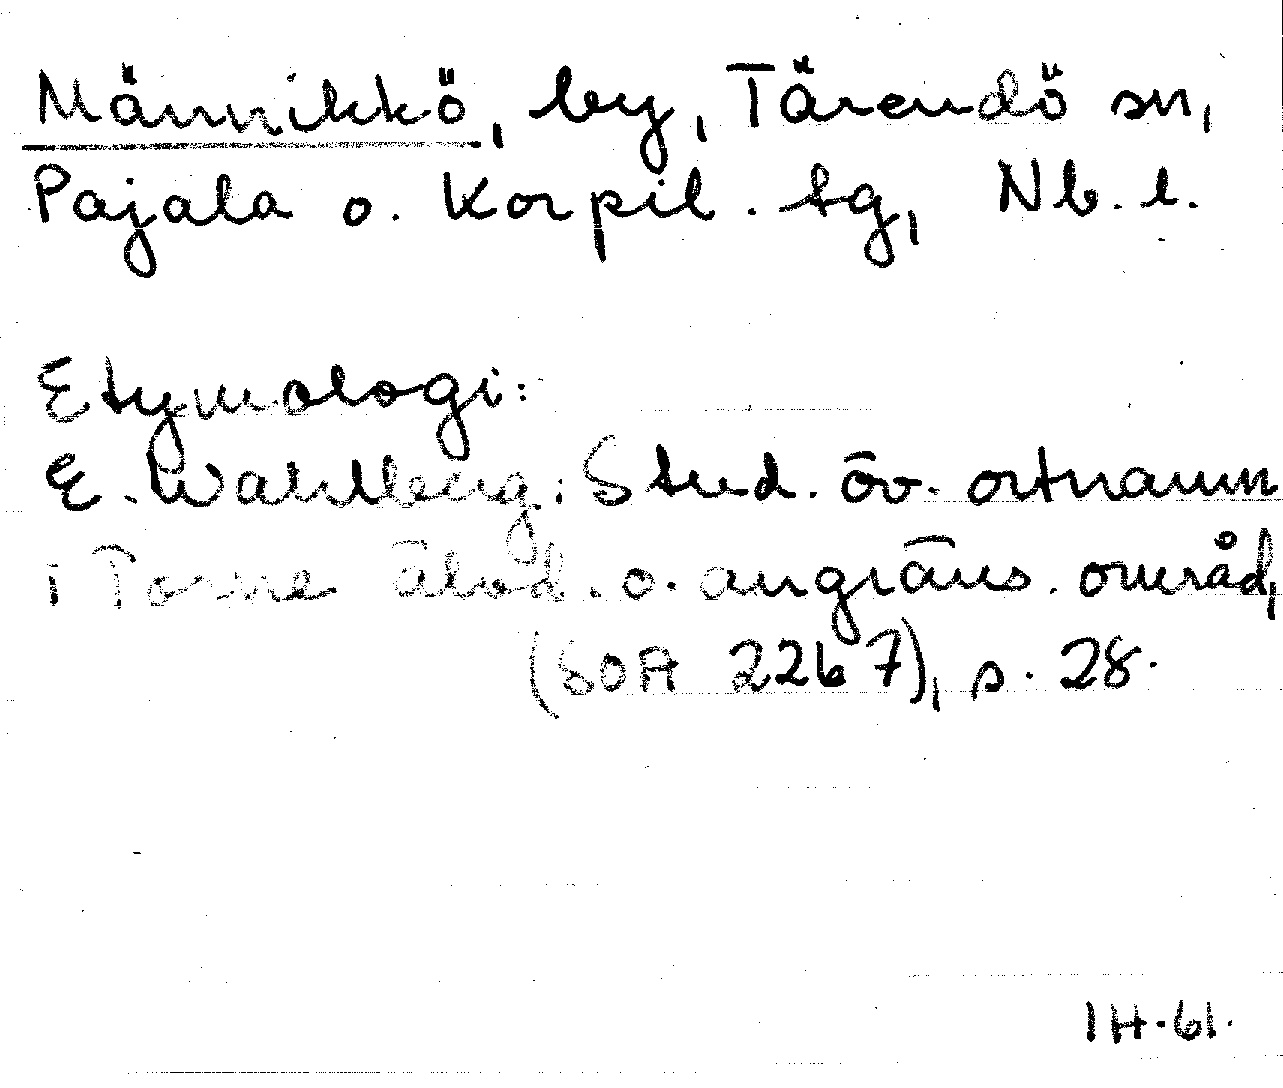 Männikkö, by, Tärendö sn,
Pajala o. Korpil. tg, Nb. l.
Etymologi:
E. Wahlberg: Stud. öv. ortnamn
i Torne älvd. o. angräns. områd,
(SOA 2267), s. 28.
IH.61.